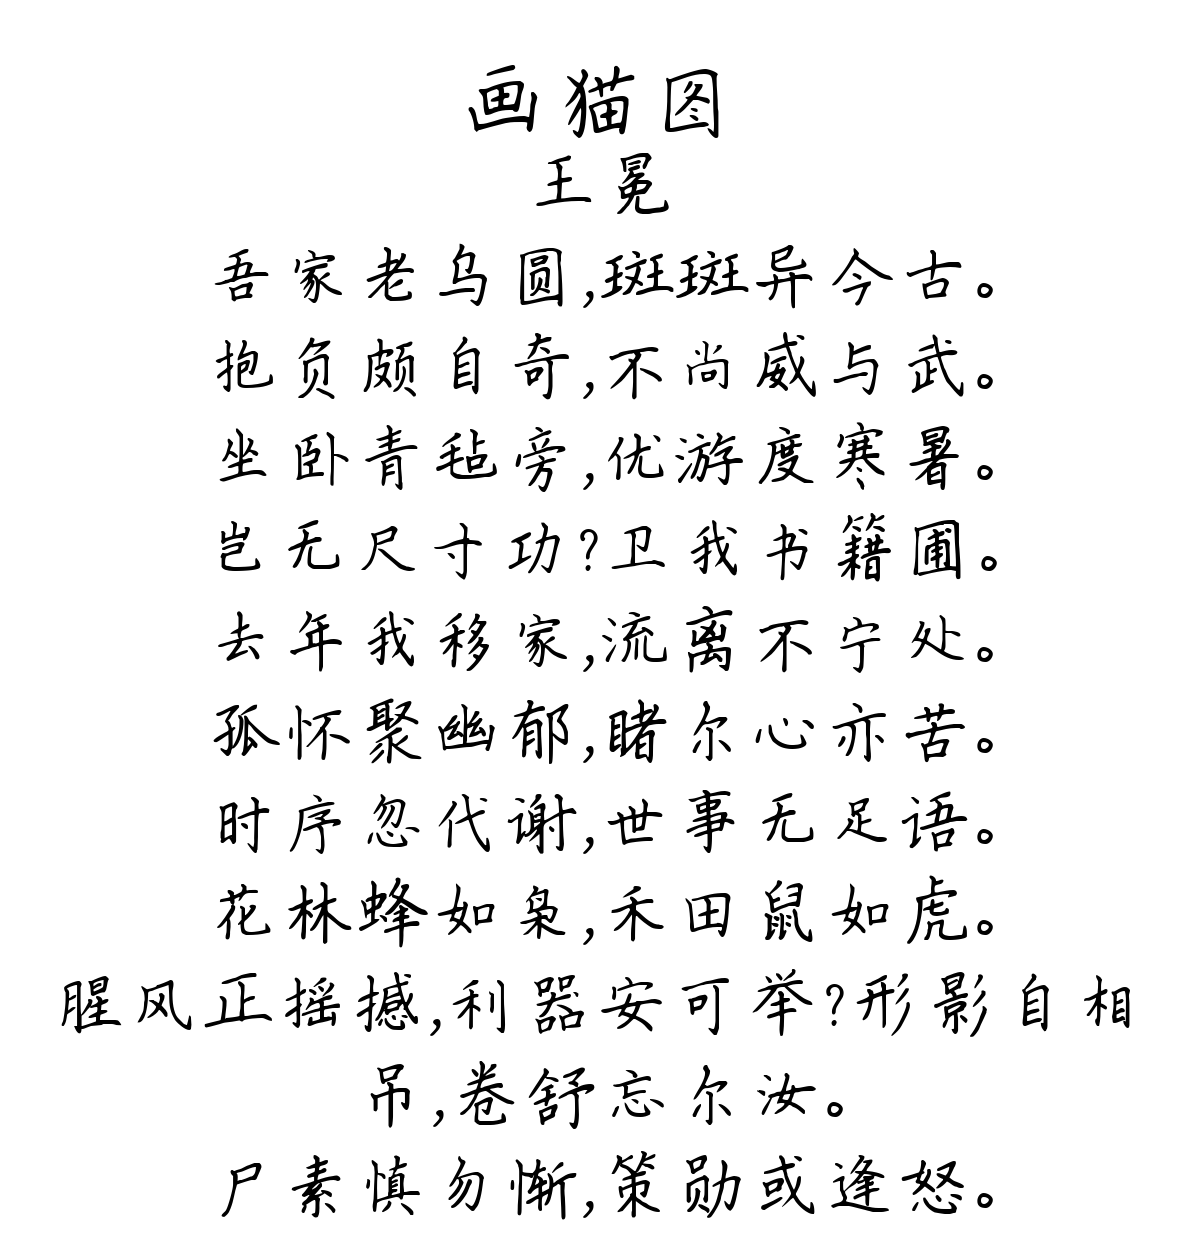 画猫图
王冕
吾家老乌圆,斑斑异今古。
抱负颇自奇,不尚威与武。
坐卧青毡旁,优游度寒暑。
岂无尺寸功?卫我书籍圃。
去年我移家,流离不宁处。
孤怀聚幽郁,睹尔心亦苦。
时序忽代谢,世事无足语。
花林蜂如枭,禾田鼠如虎。
腥风正摇撼,利器安可举?形影自相
吊,卷舒忘尔汝。
尸素慎勿惭,策勋或逢怒。